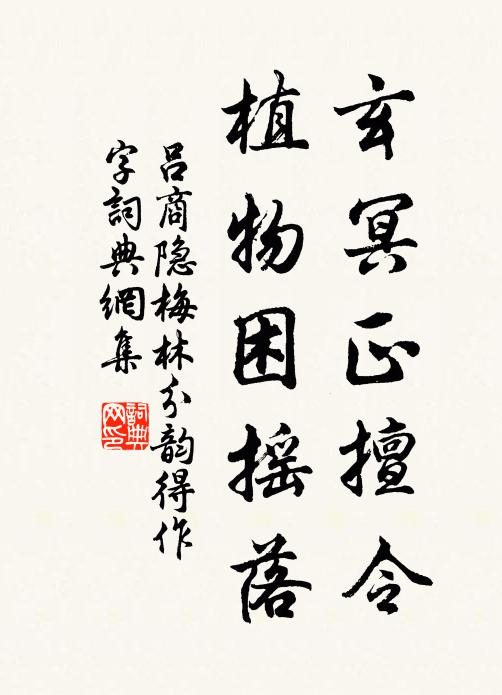 玄冥正擅令
植物困摇落
吕商隐梅林分韵得作
字詞典網集
詞典
网印